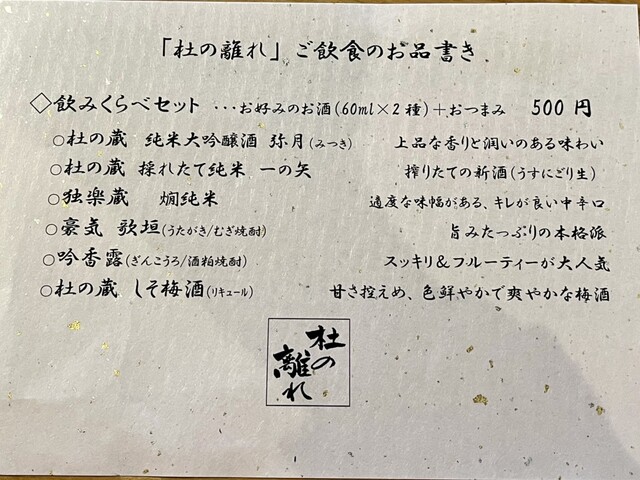 「杜の離れ」ご飲食のお品書き
◇飲みくらべセット ･･･お好みのお酒(60ml×2種)＋おつまみ 500円
○杜の蔵 純米大吟醸酒 弥月(みつき) 上品な香りと潤いのある味わい
○杜の蔵 採れたて純米 一の矢 搾りたての新酒(うすにごり生)
○独楽蔵 燗純米 適度な味幅がある、キレが良い中辛口
○豪気 歌垣(うたがき/むぎ焼酎) 旨みたっぷりの本格派
○吟香露(ぎんこうろ/酒粕焼酎) スッキリ&フルーティーが大人気
○杜の蔵 しそ梅酒(リキュール) 甘さ控えめ、色鮮やかで爽やかな梅酒
杜の
離れ